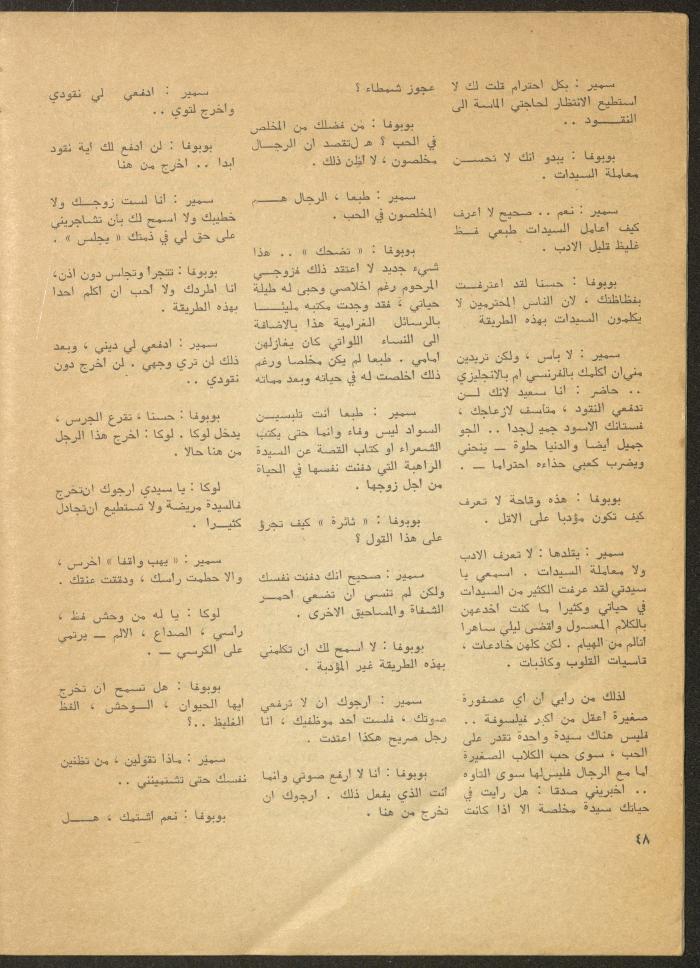 سمير : بكل احترام قلت لك لا
استطيع الانتظار لحاجتي الماسة الى
النقـــــود ..
بوبوفا : يبدو انك لا تحســـن
معاملة السيدات .
سمير : نعم .. صحيح لا اعرف
كيف اعامل السيدات طبعي فــظ
غليظ قليل الادب .
بوبوفا : حسنا لقد اعترفــت
بفظاظتك ، لان الناس المحترمين لا
يكلمون السيدات بهذه الطريقة
سمير : لا بأس ، ولكن تريدين
مني‌ان اكلمك بالفرنسي ام بالانجليزي
.. حاضر : أنا سعيد لانك لـــن
تدفعي النقود ، متأسف لازعاجك ،
فستانك الاسود جميل‌جدا .. الجو
جميل أيضا والدنيا حلوة ــ ينحني
ويضرب كعبي حذاءه احتراما ــ .
بوبوفا : هذه وقاحة لا تعرف
كيف تكون مؤدبا على الاقل .
سمير : يقلدها : لا تعرف الادب
ولا معاملة السيدات . اسمعي يا
سيدتي لقد عرفت الكثير من السيدات
في حياتي وكثيرا ما كنت اخدعهن
بالكلام المعسول واقضى ليلي ساهرا
اتألم من الهيام . لكن كلهن خادعات ،
قاسيات القلوب وكاذبات .
لذلك من رأيي ان اي عصفورة
صغيرة اعقل من اكبر فيلسوفة ..
فليس هناك سيدة واحدة تقدر على
الحب ، سوى حب الكلاب الصغيرة
أما مع الرجال فليس‌لها سوى التاوه
.. اخبريني صدقا : هل رأيت في
حياتك سيدة مخلصة الا اذا كانت
عجوز شمطاء ؟
بوبوفا : من فضلك من المخلص
في الحب ؟ هل‌تقصد ان الرجـــال
مخلصون ، لا أظن ذلك .
سمير : طبعا ، الرجال هـــم
المخلصون في الحب .
بوبوفا : « تضحك » .. هذا
شيء جديد لا اعتقد ذلك فزوجــي
المرحوم رغم اخلاصي وحبى له طيلة
حياتي ، فقد وجدت مكتبه مليئـــا
بالرسائل الغرامية هذا بالاضافة
الى النساء اللواتي كان يغازلهن
امامي . طبعا لم يكن مخلصا ورغم
ذلك اخلصت له في حياته وبعد مماته
سمير : طبعا أنت تلبسيــن
السواد ليس وفاء وانما حتى يكتب
الشعراء او كتاب القصة عن السيدة
الراهبة التي دفنت نفسها في الحياة
من أجل زوجها .
بوبوفا : « ثائرة » كيف تجرؤ
على هذا القول ؟
سمير : صحيح انك دفنت نفسك
ولكن لم تنسي ان تضعي احمـــر
الشفاة والمساحيق الاخرى .
بوبوفا : لا اسمح لك ان تكلمني
بهذه الطريقة غير المؤدبة .
سمير : ارجوك ان لا ترفعي
صوتك ، فلست أحد موظفيك ، انا
رجل صريح هكذا اعتدت .
بوبوفا : أنا لا ارفع صوتي وانما
أنت الذي يفعل ذلك . ارجوك ان
تخرج من هنا .
سمير : ادفعي لي نقودي
واخرج لتوي ..
بوبوفا : لن ادفع لك أية نقود
ابدا .. أخرج من هنا
سمير : أنا لست زوجــك ولا
خطيبك ولا اسمح لك بأن تشاجريني
على حق لي في ذمتك « يجلس » .
بوبوفا : تتجرأ وتجلس دون اذن،
أنا اطردك ولا احب ان اكلم احدا
بهذه الطريقة .
سمير : ادفعي لي ديني ، وبعد
ذلك لن تري وجهي . لن أخرج دون
نقودي ..
بوبوفا : حسنا ، تقرع الجرس ،
يدخل لوكا . لوكا : اخرج هذا الرجل
من هنا حالا .
لوكا : يا سيدي ارجوك ان‌تخرج
فالسيدة مريضة ولا تستطيع ان‌تجادل
كثيــرا .
سمير : « يهب واقفا » اخرس ،
والا حطمت رأسك ، ودققت عنقك .
لوكا : يا له من وحش فظ ،
رأسي ، الصداع ، الالم ــ يرتمي
على الكرسي ــ .
بوبوفا : هل تسمح ان تخرج
ايها الحيوان ، الـــوحش ، الفظ
الغليظ ..؟
سمير : ماذا تقولين ، من تظنين
نفسك حتى تشتمينني ..
بوبوفا : نعم اشتمك ، هـــــل
٤٨